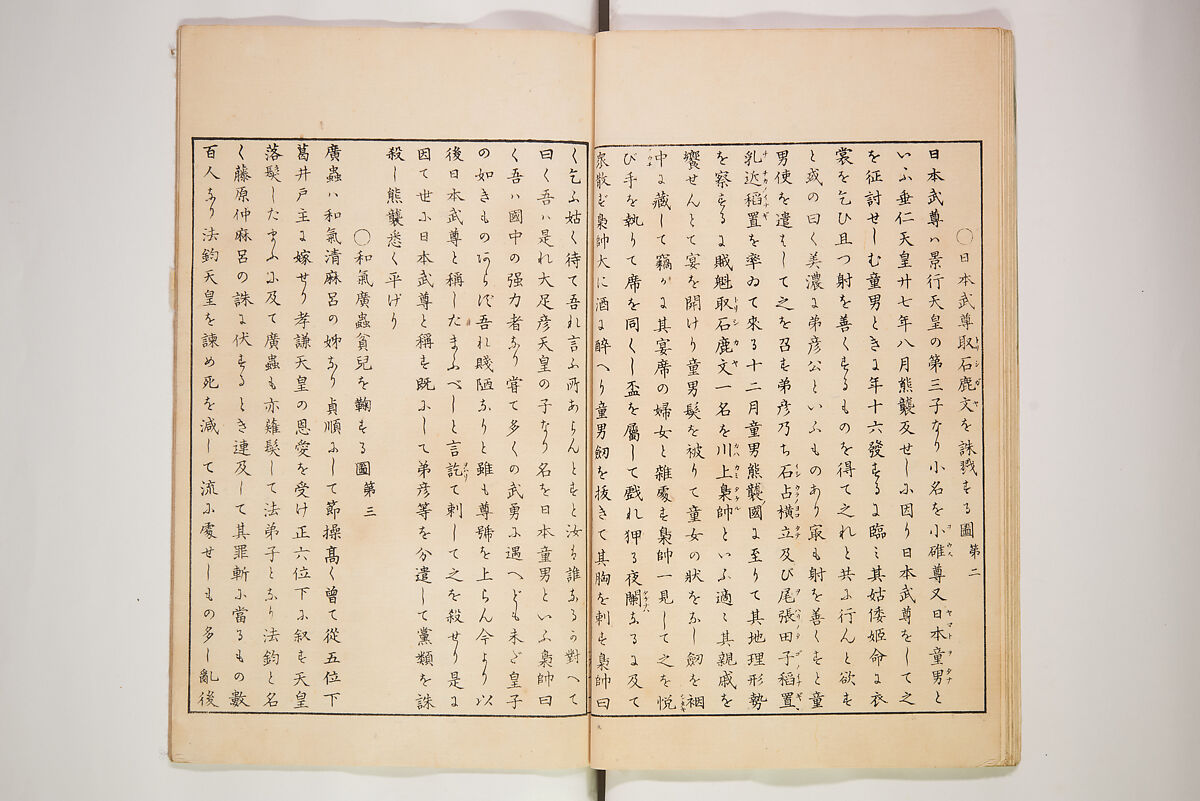 〇日本武尊取石鹿文を誅戮する圖 第二
日本武尊ハ景行天皇の第三子なり小名を小碓尊又日本童男と
いふ垂仁天皇廿七年八月熊襲反せしに因り日本武尊をして之
を征討せしむ童男ときに年十六發するに臨ミ其姑倭姫命に衣
裳を乞ひ且つ射を善くするものを得て之れと共に行んと欲す
と或の曰く美濃に弟彦公といふものあり㝡も射を善くすと童
男使を遣はして之を召す弟彦乃ち石占横立及び尾張田子稻置
乳近稻置を率ゐて來る十二月童男熊襲國に至りて其地理形勢
を察するに賊魁取石鹿文一名を川上梟帥といふ適〻其親戚を
饗せんとて宴を開けり童男髮を被りて童女の狀をなし劔を裀
中に藏して竊かに其宴席の婦女と雜處す梟帥一見して之を悅
び手を執りて席を同くし盃を屬して戲れ狎る夜闌なるに及て
衆散ず梟帥大に酒に醉へり童男劔を抜きて其胸を刺す梟帥曰
く乞ふ姑く待て吾れ言ふ所あらんとす汝は誰なるか對へて
曰く吾ハ是れ大足彦天皇の子なり名を日本童男といふ梟帥曰
く吾ハ國中の强力者なり嘗て多くの武勇に遇へども未ど皇子
の如きものあらず吾れ賤陋なりと雖も尊號を上らん今より以
後日本武尊と稱したまふべしと言訖て刺して之を殺せり是に
因て世に日本武尊と稱す既にして弟彦等を分遣して黨類を誅
殺し熊襲悉く平げり
〇和氣廣蟲貧兒を鞠する圖 第三
廣蟲ハ和氣清麻呂の姉なり貞順にして節操髙く曾て從五位下
葛井戸主に嫁せり孝謙天皇の恩愛を受け正六位下に叙す天皇
落髮したまふに及て廣蟲も亦薙髮して法弟子となり法鈞と名
く藤原仲麻呂の誅に伏するとき連及して其罪斬に當るもの數
百人なり法鈞天皇を諫め死を減して流に處せしもの多し亂後